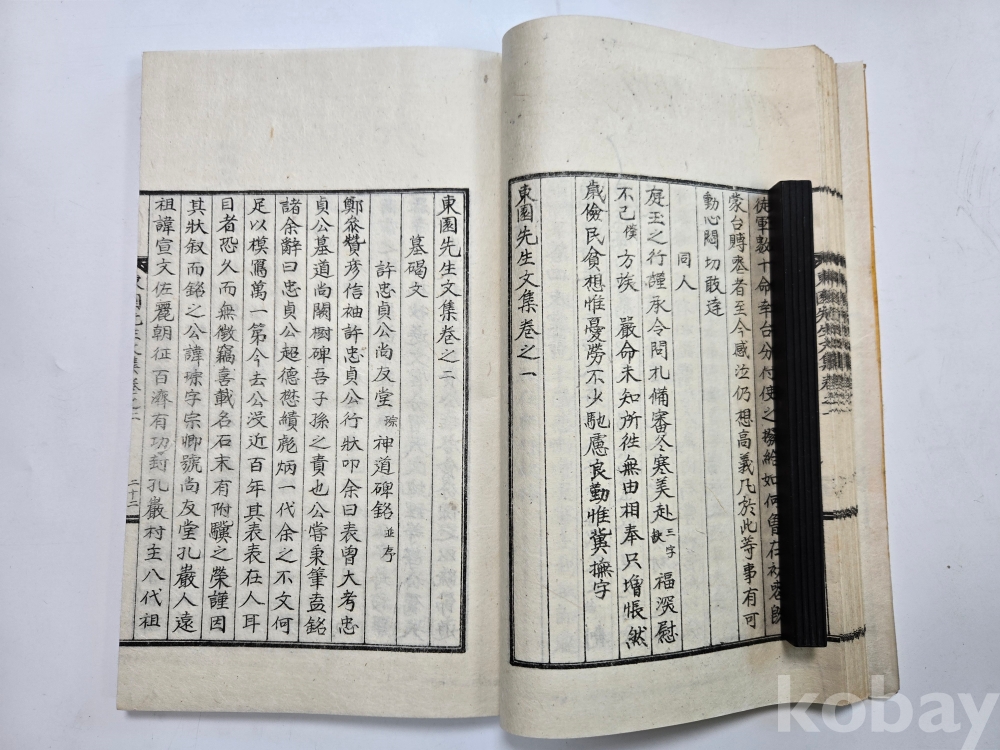 徒軍數十命幸台分付使之 給如何曾在初
蒙台賻 者至今感泣仍想高義凡於此等事有可
動心悶切敢達
同人
庭玉之行謹承令問札備審冬寒美赴 三字缺 福深慰
不已僕方俟 嚴命未知所從無由相奉只增悵然
歲儉民貧想惟憂勞不少馳慮良勤惟冀撫字
東園先生文集卷之一
東園先生文集卷之二
墓碣文
許忠貞公尚友堂 琮 神道碑銘 並序
鄭 贊彦信袖許忠貞公行狀叩余曰表曾大考忠
貞公墓道尚闕樹碑吾子孫之責也公嘗秉筆盍銘
諸余辭曰忠貞公超德懋績彪炳一代余之不文何
足以模寫萬一第今去公沒近百年其表表在人耳
目者恐久而無徵竊喜載名石末有附驥之榮謹因
其狀叙而銘之公諱琮字宗卿號尚友堂孔巖人遠
祖諱宣文佐麗朝征百濟有功封孔巖村主八代祖
東園先生文集卷之二
二十二
kobay